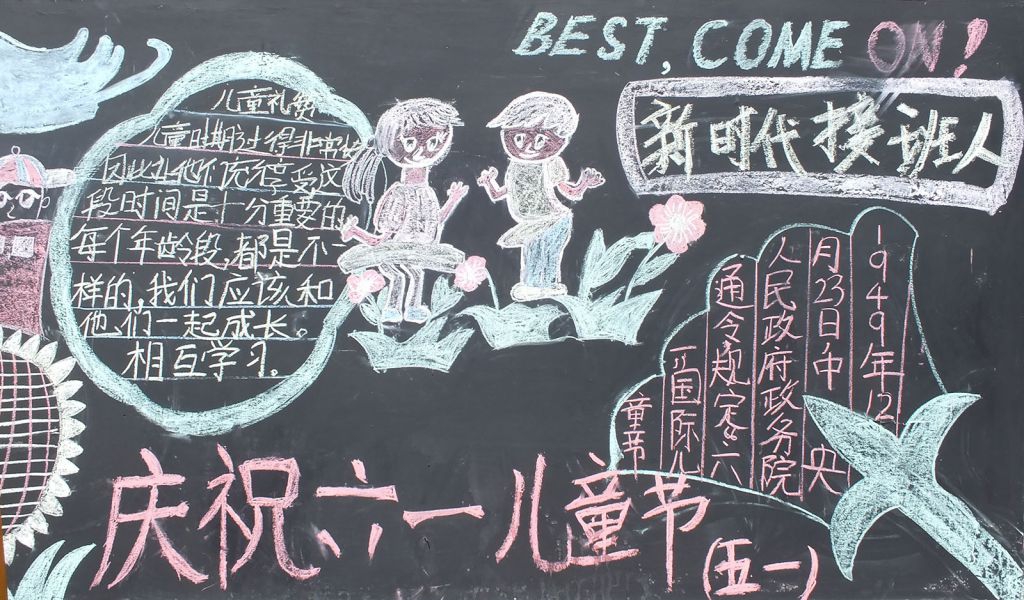 BEST, COME ON!
新时代接班人
儿童礼赞
儿童时期过得非常快
因此让他们充分享受这
段时间是十分重要的
每个年龄段,都是不一
样的,我们应该和
他们一起成长。
相互学习。
1949年12
月23日中央
人民政府政务院
通令规定“六
一”国际儿
童节
庆祝六一儿童节
(五一)